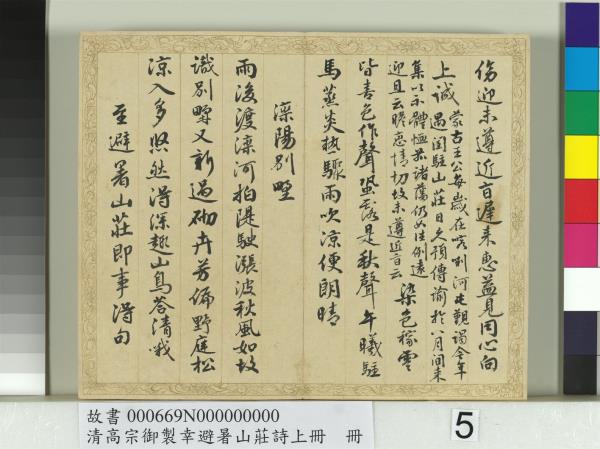 迎未遵近旨遲来惠益見用心向
上誠
蒙古王公每歲在喀喇河屯覲謁今年
遇閏駐山莊日久預傳諭於八月間来
集以示體恤茲諸藩仍如往例遠
迎且云瞻戀情切故未遵近旨云
染色稼雲
皆喜色作聲蛩露是秋聲午曦駐
馬蒸炎熱驟雨吹涼便朗晴
灤陽別墅
雨後渡灤河拍隄駛漲波秋風如故
識別墅又新過砌卉芳偏野庭松
涼入多悠然得深趣山鳥答清哦
至避暑山莊即事得句
故書 000669N000000000
清高宗御製幸避暑山莊詩上冊 冊
5